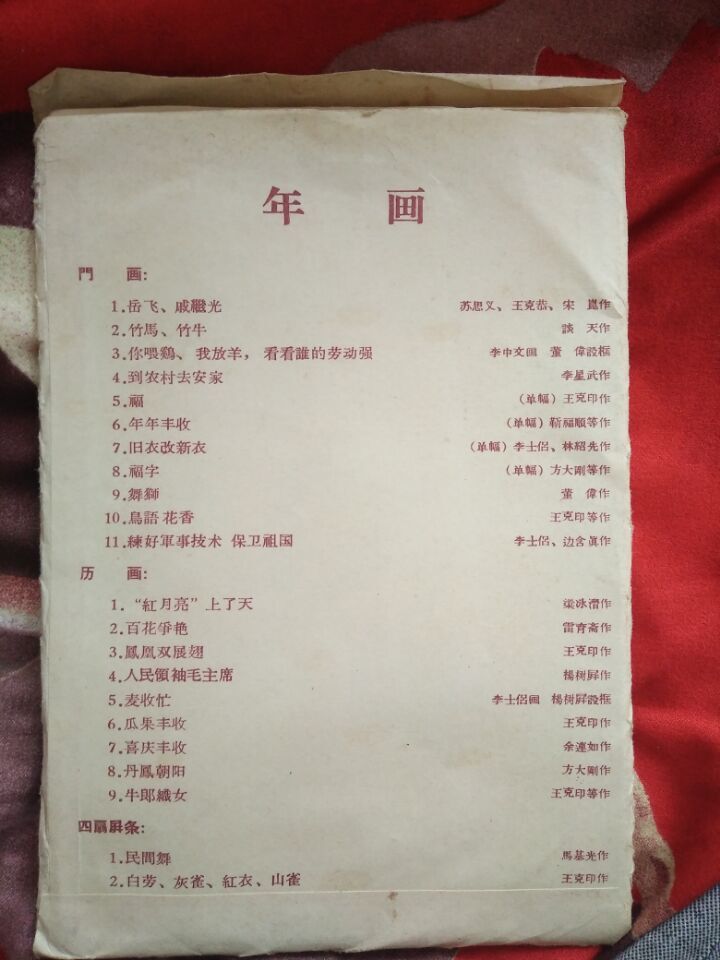 年 画
門 画:
1.岳飞、戚繼光 苏思义、王克恭、宋 崑作
2.竹馬、竹牛 談 天作
3.你喂鷄、我放羊，看看誰的劳动强 李中文画 董 偉設框
4.到农村去安家 李星武作
5.福 (单幅) 王克印作
6.年年丰收 (单幅) 靳福順等作
7.旧衣改新衣 (单幅) 李士侣、林紹先作
8.福字 (单幅) 方大剛等作
9.舞獅 董 偉作
10.鳥語花香 王克印等作
11.練好軍事技术 保卫祖国 李士侣、边含眞作
历 画:
1.“紅月亮”上了天 梁冰潛作
2.百花爭艳 雷育斋作
3.鳳凰双展翅 王克印作
4.人民領袖毛主席 楊树屛作
5.麦收忙 李士侣画 楊树屛設框
6.瓜果丰收 王克印作
7.喜庆丰收 余連如作
8.丹鳳朝阳 方大剛作
9.牛郎織女 王克印等作
四扇屛条:
1.民間舞 馬基光作
2.白劳、灰雀、紅衣、山雀 王克印作